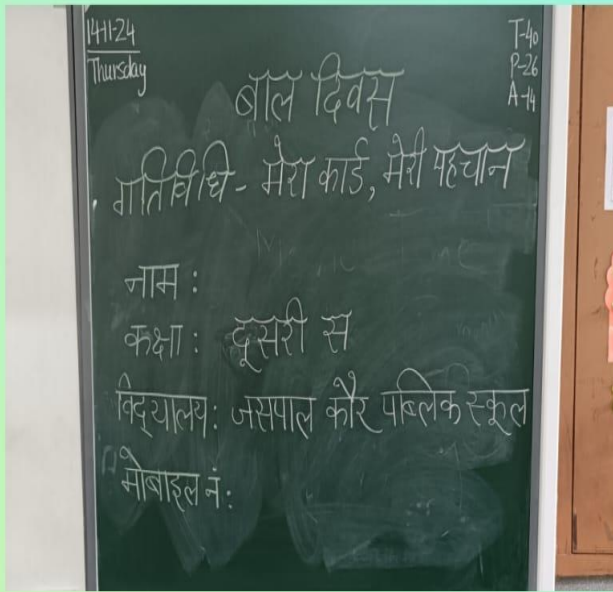 14-11-24
Thursday
T-40
P-26
A-14
बाल दिवस
गतिविधि - मेरा कार्ड, मेरी पहचान
नाम :
कक्षा : दूसरी स
विद्यालय: जसपाल कौर पब्लिक स्कूल
मोबाइल नं: